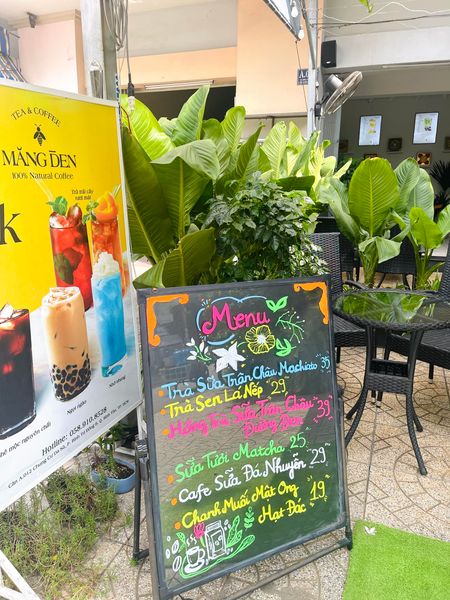 TEA & COFFEE
MĂNG ĐEN
100% Natural Coffee
Trà trái cây
tươi mát
k
Ngọt ngào
Hotline: 058.910.8528
Menu
Trà Sữa Trân Châu Machiato 35
Trà Sen Lá Nếp 29
Hồng Trà Sữa Trân Châu 39
Đường Đen
Sữa Tươi Matcha 25
Cafe Sữa Đá Nhuyễn 29
Chanh Muối Mật Ong 19
Hạt Đác